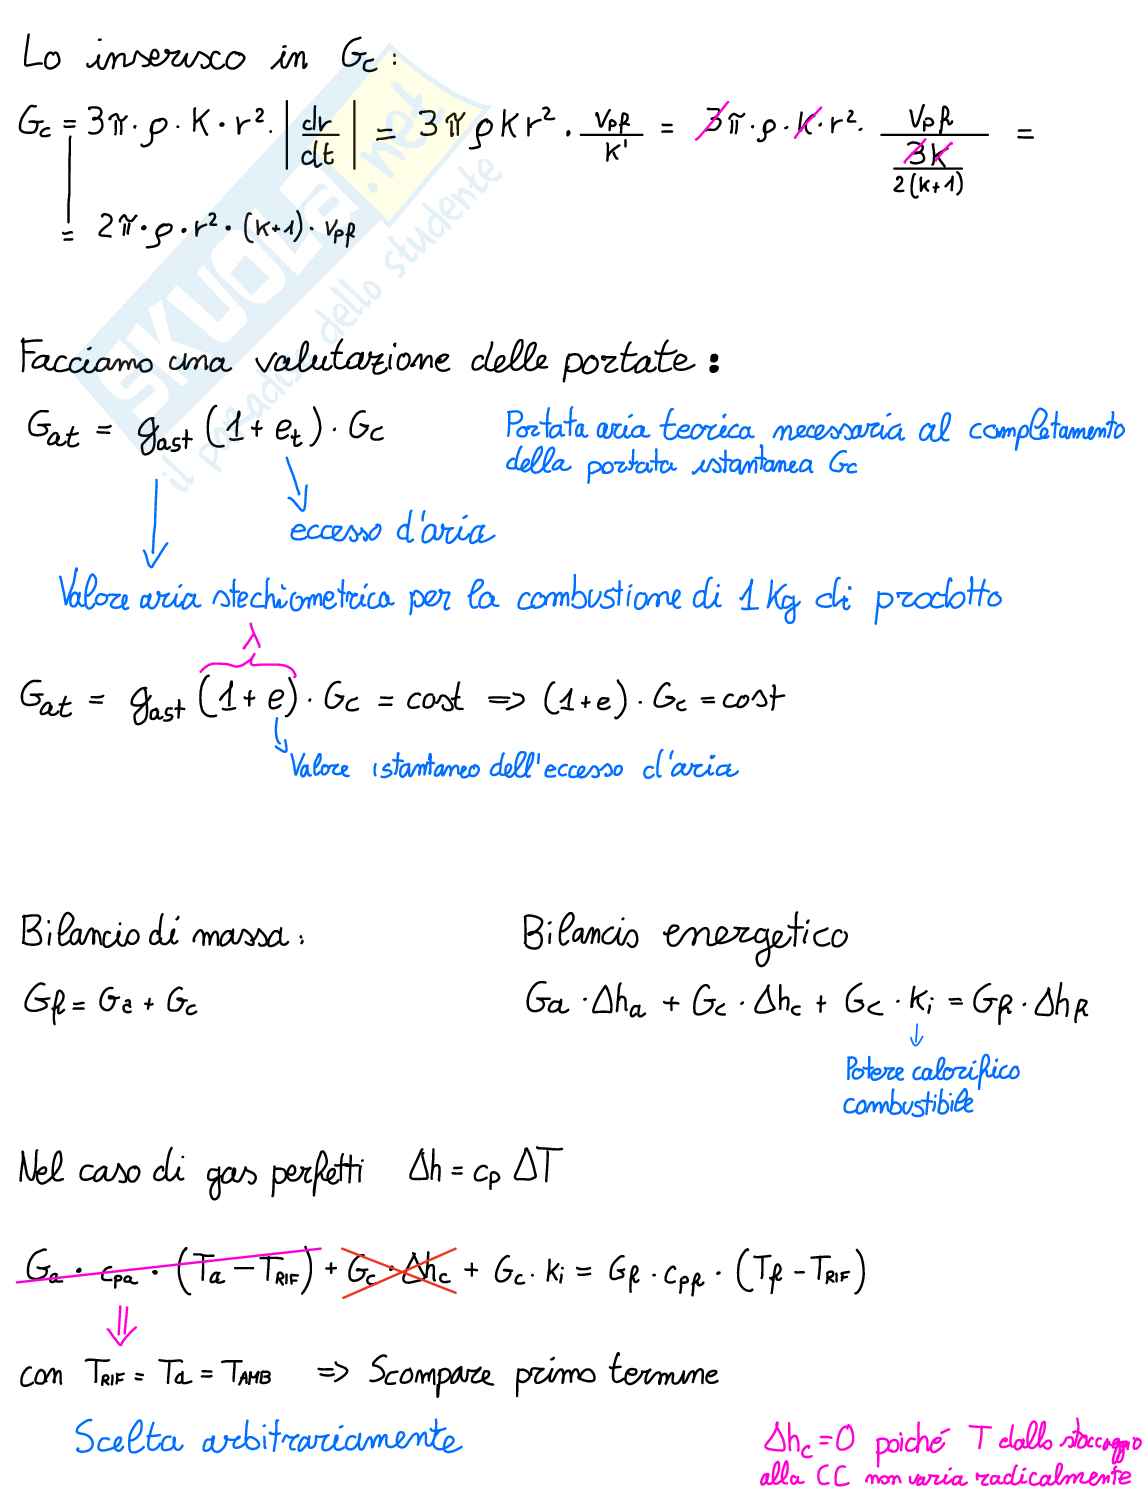 Lo inserisco in Gc:
Gc = 3π·ρ·K·r²·|dr/dt| = 3πρKr²·vpf/K' = 3π·ρ·K·r²·vpf/(3K/2(K+1)) =
= 2π·ρ·r²·(K+1)·vpf
SKUOLA.net
il paradiso dello studente
Facciamo una valutazione delle portate:
Gat = gast (1+et)·Gc
Portata aria teorica necessaria al completamento
della portata istantanea Gc
eccesso d'aria
Valore aria stechiometrica per la combustione di 1 Kg di prodotto
λ
Gat = gast (1+e)·Gc = cost => (1+e)·Gc = cost
Valore istantaneo dell'eccesso d'aria
Bilancio di massa:
Gf = Ga + Gc
Bilancio energetico
Ga·Δha + Gc·Δhc + Gc·Ki = Gf·Δhf
Potere calorifico
combustibile
Nel caso di gas perfetti Δh = cp ΔT
Ga·cpa·(Ta−TRIF) + Gc·Δhc + Gc·Ki = Gf·cpf·(Tf−TRIF)
con TRIF = Ta = TAMB => Scompare primo termine
Scelta arbitrariamente
Δhc=0 poiché T dallo stoccaggio
alla CC non varia radicalmente